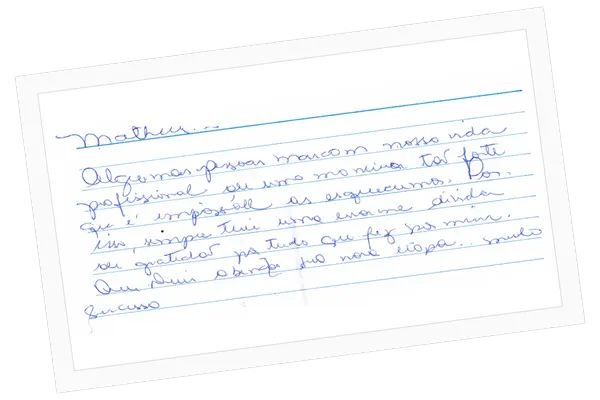 Matheus...
Algumas pessoas marcam nossa vida
profissional de uma maneira tão forte
que é impossível as esquecermos. Por
isso, sempre terei uma enorme dívida
de gratidão por tudo que fez por mim.
Que Deus abençoe sua nova etapa... muito
sucesso